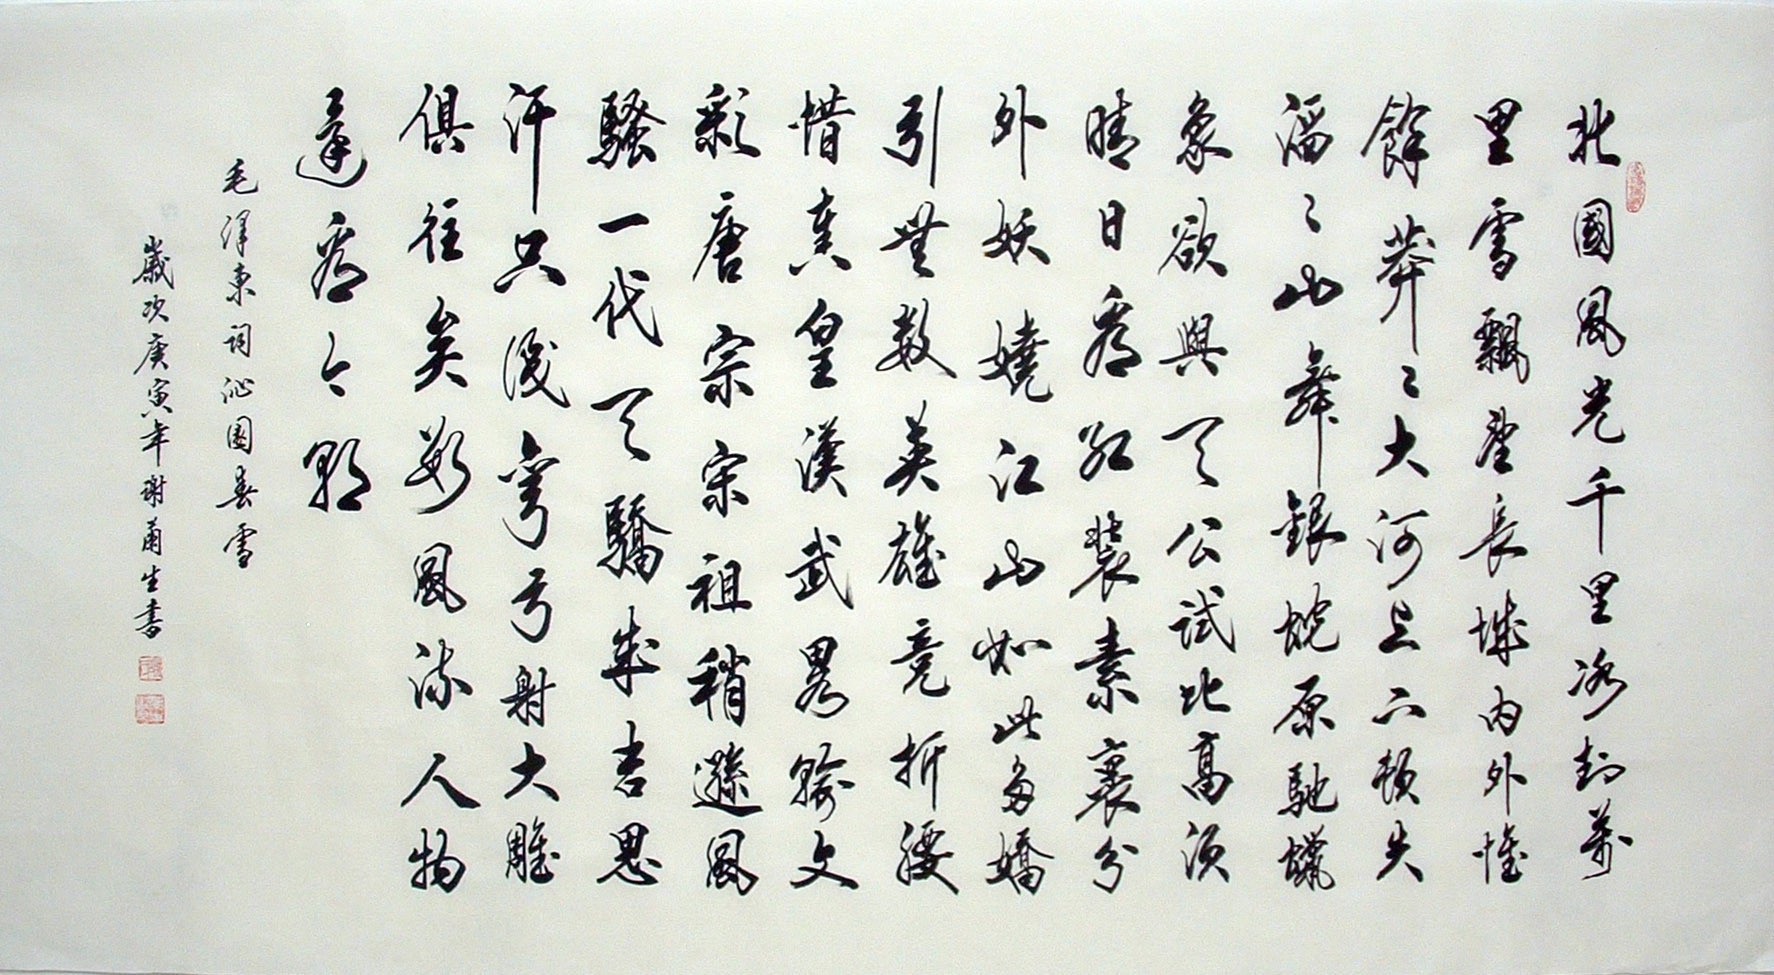 北國風光千里冰封萬
里雪飄望長城內外惟
餘莽〻大河上下頓失
滔〻山舞銀蛇原馳蠟
象欲與天公試比高須
晴日看紅裝素裹分
外妖嬈江山如此多嬌
引無數英雄竞折腰
惜秦皇漢武畧輸文
彩唐宗宋祖稍遜風
騷一代天驕成吉思
汗只識彎弓射大雕
俱往矣數風流人物
還看今朝
毛澤東詞沁園春雪
歲次庚寅年謝甫生書